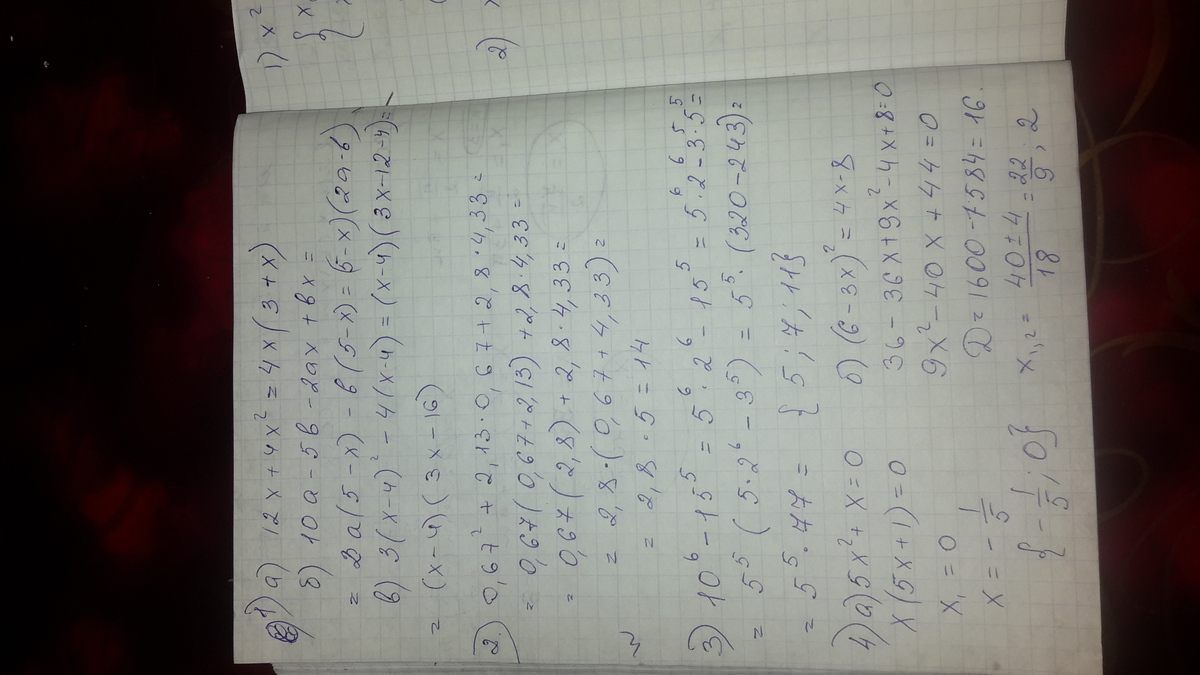 1) а) 12x + 4x² = 4x(3+x)
б) 10a - 5в - 2ax + вx =
= 2a(5-x) - в(5-x) = (5-x)(2a-в)
в) 3(x-4)² - 4(x-4) = (x-4)(3x-12-4) =
= (x-4)(3x-16)
2. 0,67² + 2,13·0,67 + 2,8·4,33 =
= 0,67(0,67+2,13) + 2,8·4,33 =
= 0,67(2,8) + 2,8·4,33 =
= 2,8·(0,67+4,33) =
= 2,8·5 = 14
3) 10⁶ - 15⁵ = 5⁶·2⁶ - 15⁵ = 5⁶·2⁶ - 3⁵·5⁵ =
= 5⁵(5·2⁶ - 3⁵) = 5⁵·(320-243) =
= 5⁵·77 = {5; 7; 11}
4) а) 5x² + x = 0
x(5x+1) = 0
x₁ = 0
x = -1/5
{-1/5; 0}
б) (6-3x)² = 4x-8
36 - 36x + 9x² - 4x + 8 = 0
9x² - 40x + 44 = 0
D = 1600 - 1584 = 16.
x₁,₂ = (40±4)/18 = 22/9; 2
1) x²
2)